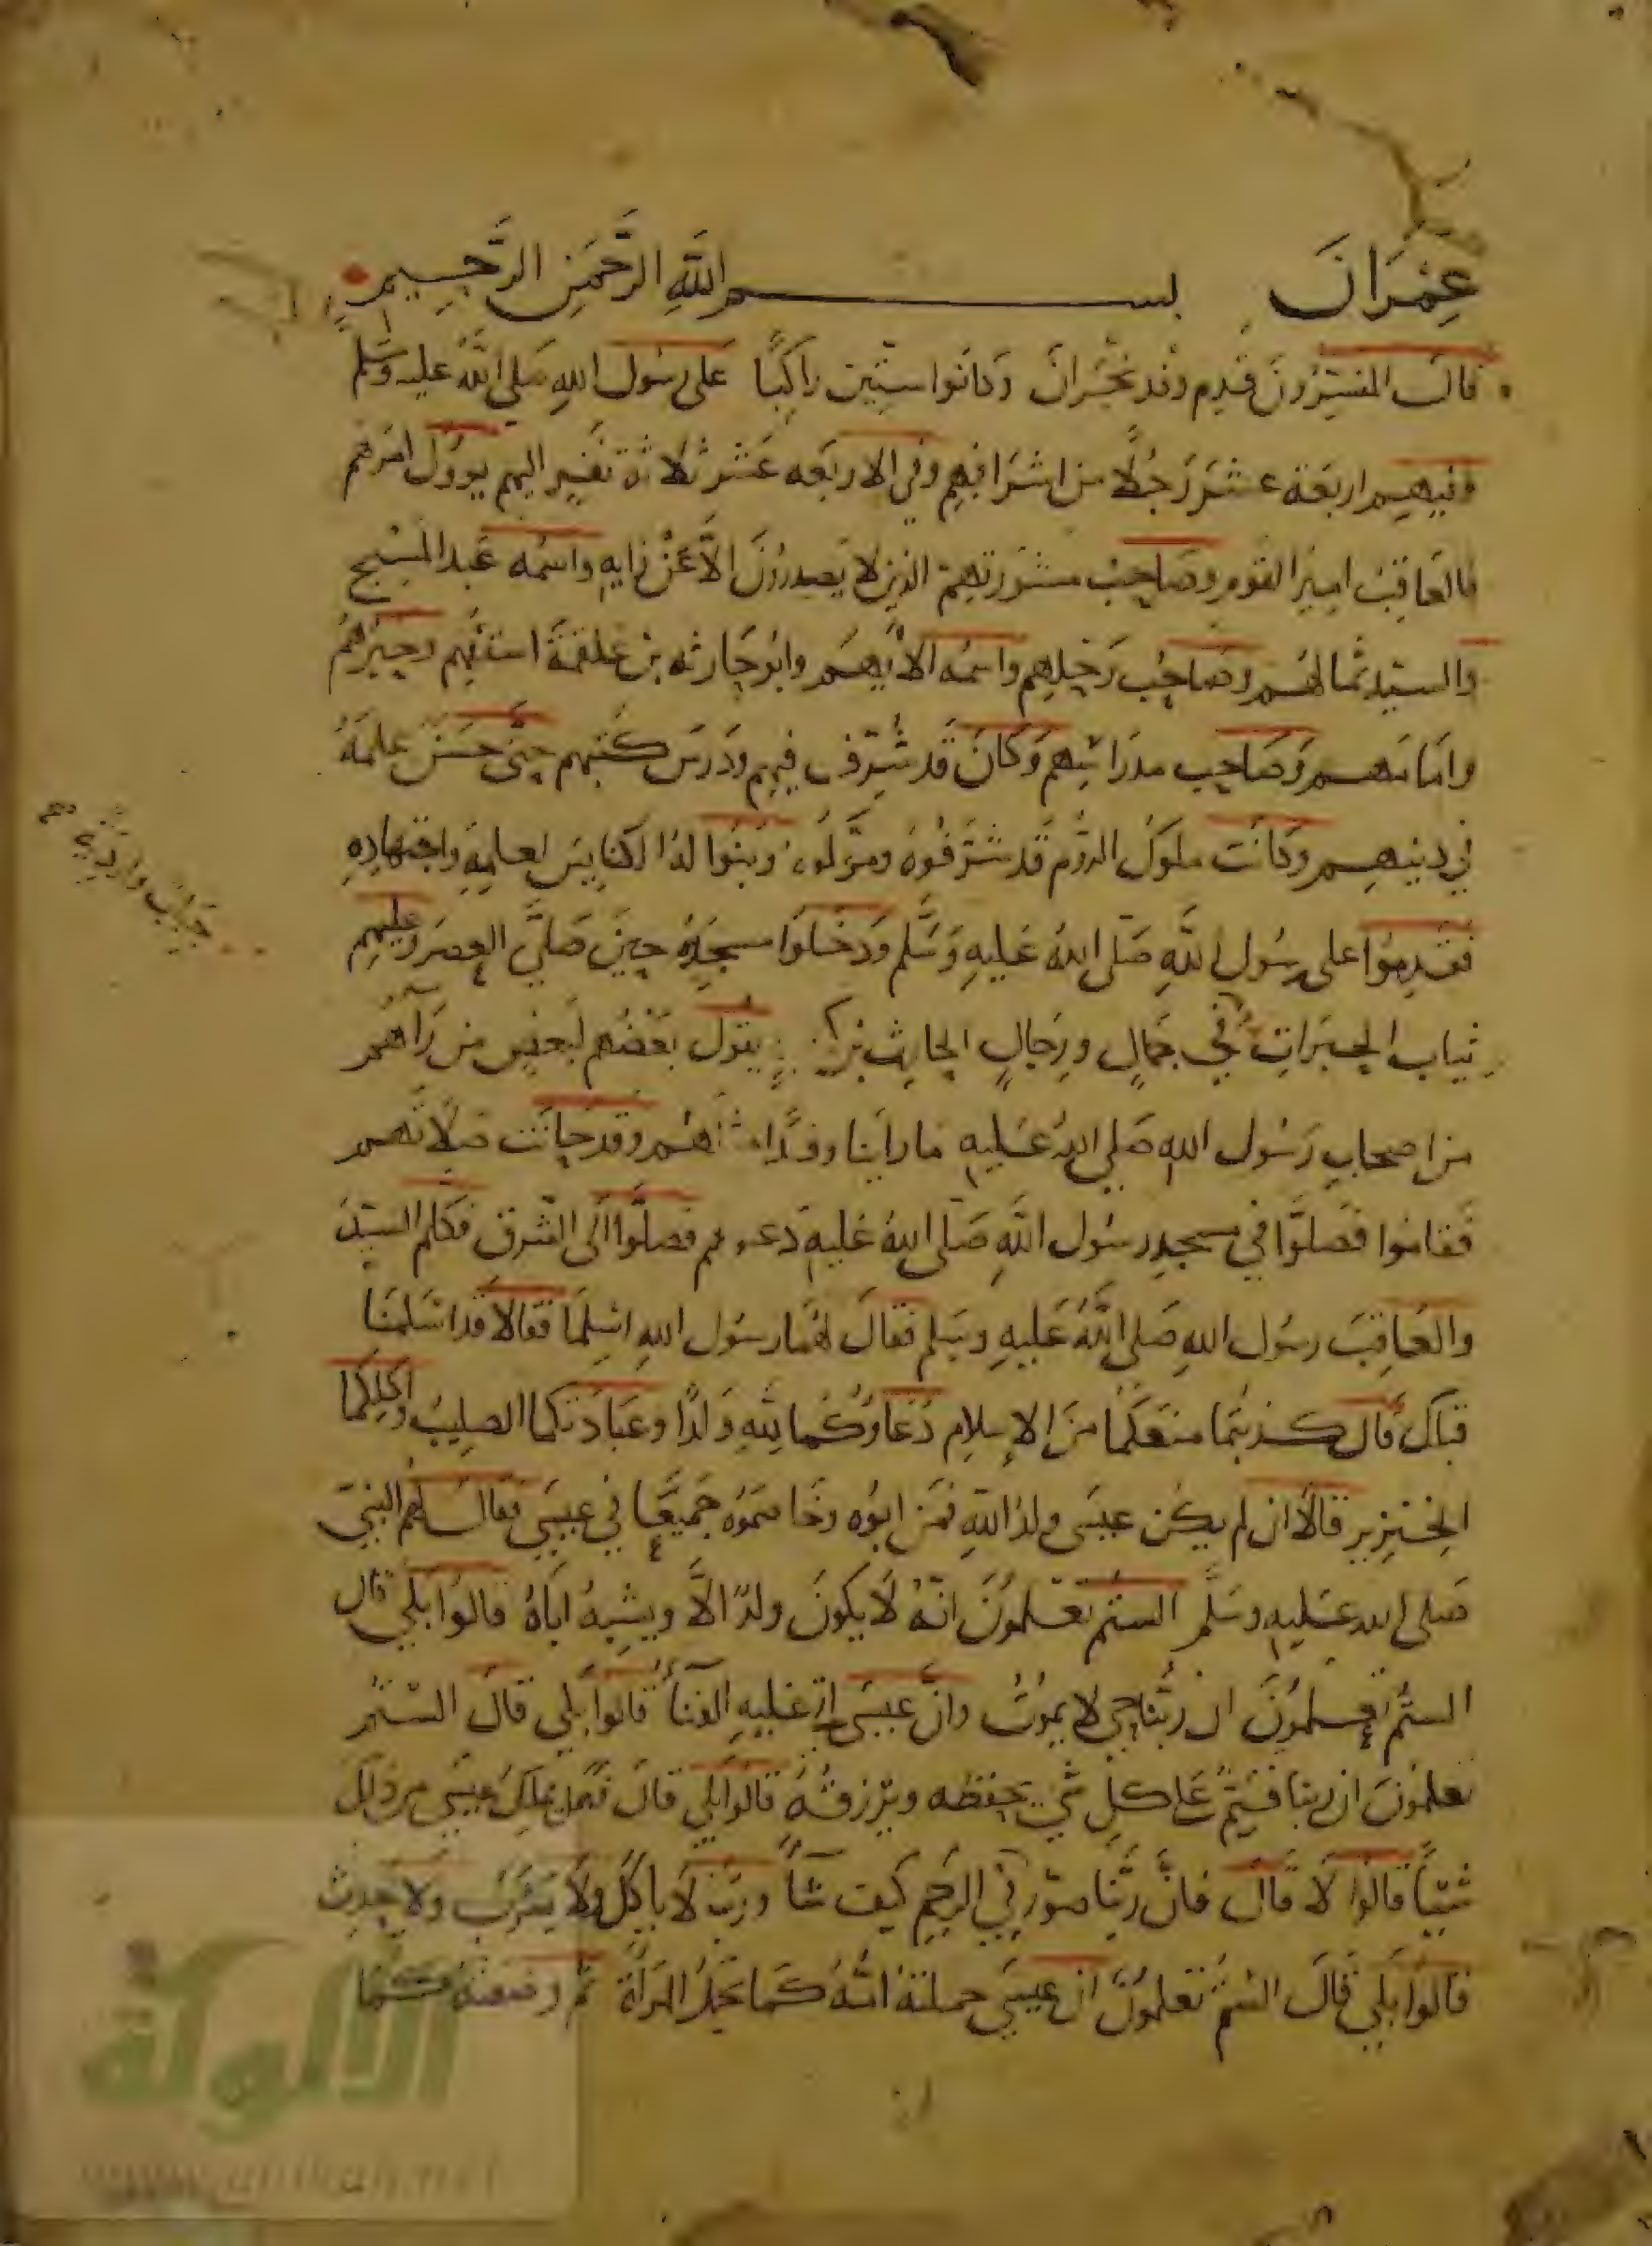 عِمْرَانَ بســـم اللهِ الرَّحْمَنِ الرَّحِيمِ
قالَ المفسِّرُونَ قَدِم وَفد نَجْرَانَ وَكانَوا سِتِّين رَاكِبًا عَلى رسُول اللهِ صَلى اللهُ عليه وَسَلم
وفيهِم اربَعَة عشَر رَجُلًا من اشرَافِهِم وفي الاربَعه عَشر ثلاثة نَفَر اليهم يووُل امرهُم
فالعَاقِبُ اميرُ القَوم وصَاحِبُ مشوَرتهِم الذِي لا يَصدرُونَ الاَّ عَنْ رَايهِ واسمُه عَبد المَسْيح
والسيِّد ثمالهُم وصَاحِبُ رَحْلهِم واسمُه الاَيْهَم وابُو حَارثه بنُ عَلقمَةَ اسقُفهم وحبرُهُم
وامَامهم وَصَاحِب مدرَاسِهِم وَكَانَ قَد شُرِّف فِيهِم ودَرَسَ كتبَهم حَتى حَسُنَ علمَهُ
في دينهِم وكانَت ملوكُ الرُّوم قَد شَرَّفُوهُ ومَوَّلُوه وَبَنوُا لهُ الكنايسَ لعلمِهِ واجتهادِهِ
فَقدِمُوا على رسُول اللَّهِ صَلى اللهُ عَليهِ وَسَلم وَدخَلوَا مسجِدَهُ حِينَ صَلَّى العصرَ وعَليهِم
ثياب الحِبَرَاتِ في جَمالِ ورِجَالِ الحارِث بن كـ يَقول بعضُهم لبَعضٍ من رَآهُم
من اصحاب رَسُول اللهِ صَلى اللهُ عَليهِ مَا رَاينا وفدًا مثلَهُم وقَد حَانَت صَلاتُهم
فَقامُوا فَصَلوَّا في مسجدِ رسُول اللَّهِ صَلى اللهُ عَليهِ دعوهم فصَلُّوا الَى الشَرق فكلم السَيّدُ
والعَاقِبَ رسُول اللهِ صَلى اللهُ عَليهِ وسَلم فقالَ لهُمَا رسُول اللهِ اسْلِمَا فقالا قد اسْلمْنَا
قبلكَ قال كذبتمَا منعكمَا مِنَ الإسلامِ دُعَاوُكُمَا للهِ وَلدًا وعبَادَتكما الصلِيبُ وَاكلِكُمَا
الخِنزير قالاَ ان لم يكُن عيسَى ولدُ اللهِ فمَن ابُوه وخَاصَمُوهُ جَميعًا في عيسَى فقال لهُم النبيَّ
صَلى اللهُ عَليهِ وسَلَّم السْتُم تَعْلمُونَ انّهُ لَا يكونَ ولدٌ الاَّ ويشبِهُ ابَاهُ قالوُا بَلى قال
السْتُم تعلمُونَ ان رَبَّنا حي لا يمُوُتُ وانَّ عيسَى ياتي عَليهِ الفنَاُ قالوا بلى قالَ السْتُم
تعلمُونَ ان رَبنا قيِّم عَلى كلِ شَيْ يحفظه ويَرزقُهُ قالوا بلى قالَ فهَل يملكُ عيسَى من ذلكَ
شَيئًا قالوُا لا قَالَ فانَّ رَبَّنا صَوّر في الرحمِ كيف شاَ ورَبنا لا ياكلُ ولَا يَشرَبُ ولا يحدِث
قالوُا بلى قالَ السْتُم تعلمُونَ ان عيسَى حملتهُ امُّهُ كمَا تحملُ المرَاة ثم وضعَتهُ كمَا
الألوكة
www.alukah.net